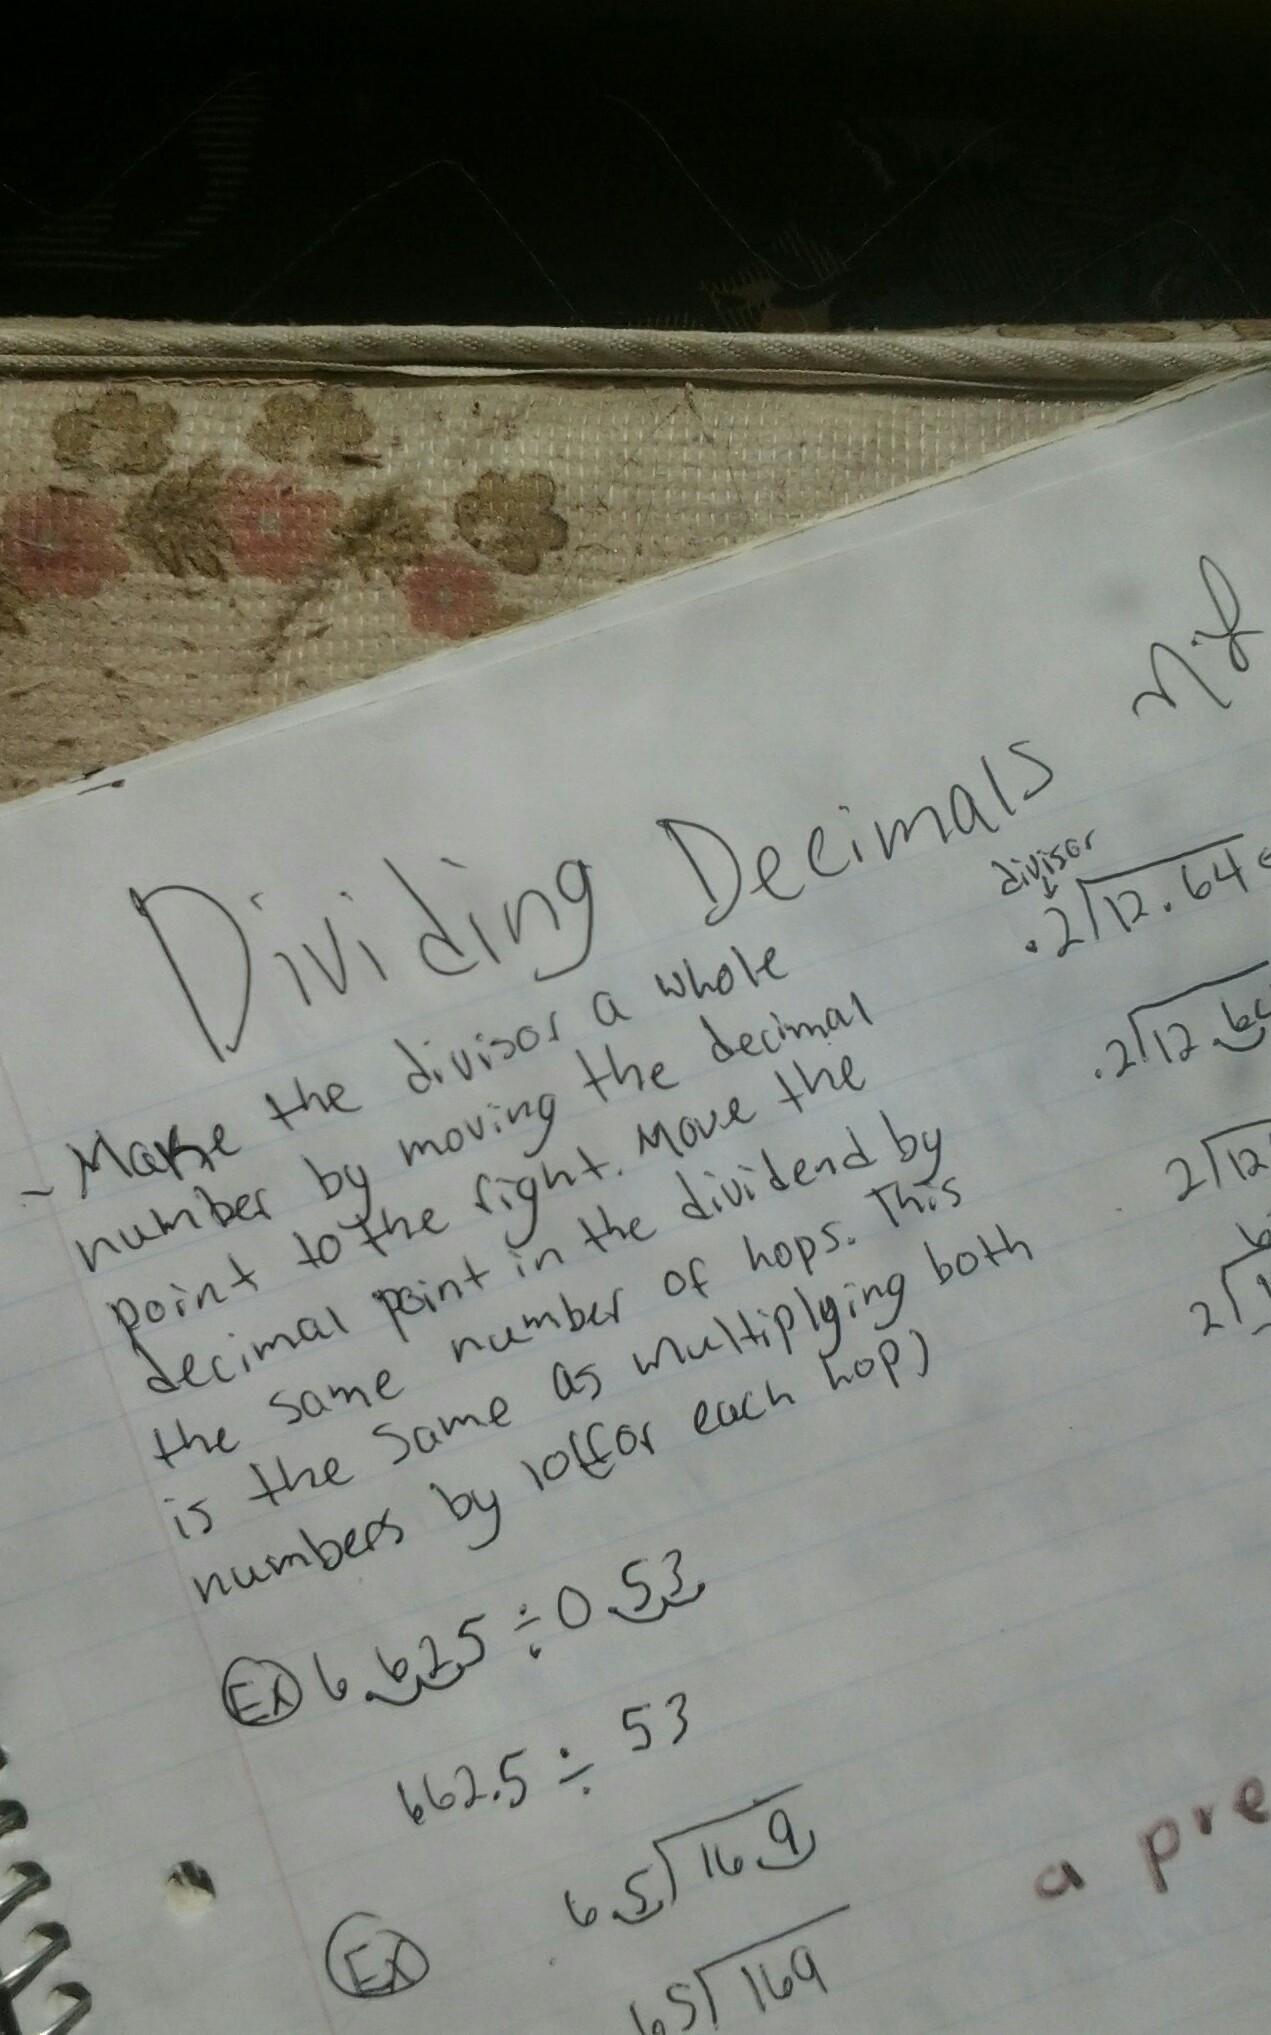 Dividing Decimals
- Make the divisor a whole
number by moving the decimal
point to the right. Move the
decimal point in the dividend by
the same number of hops. This
is the same as multiplying both
numbers by 10 (for each hop)
EX 6.625 ÷ 0.53
662.5 ÷ 53
EX 6.5)16.9
65)169
divisor
.2)12.64
.2)12.64
2)12
2)1
a pre